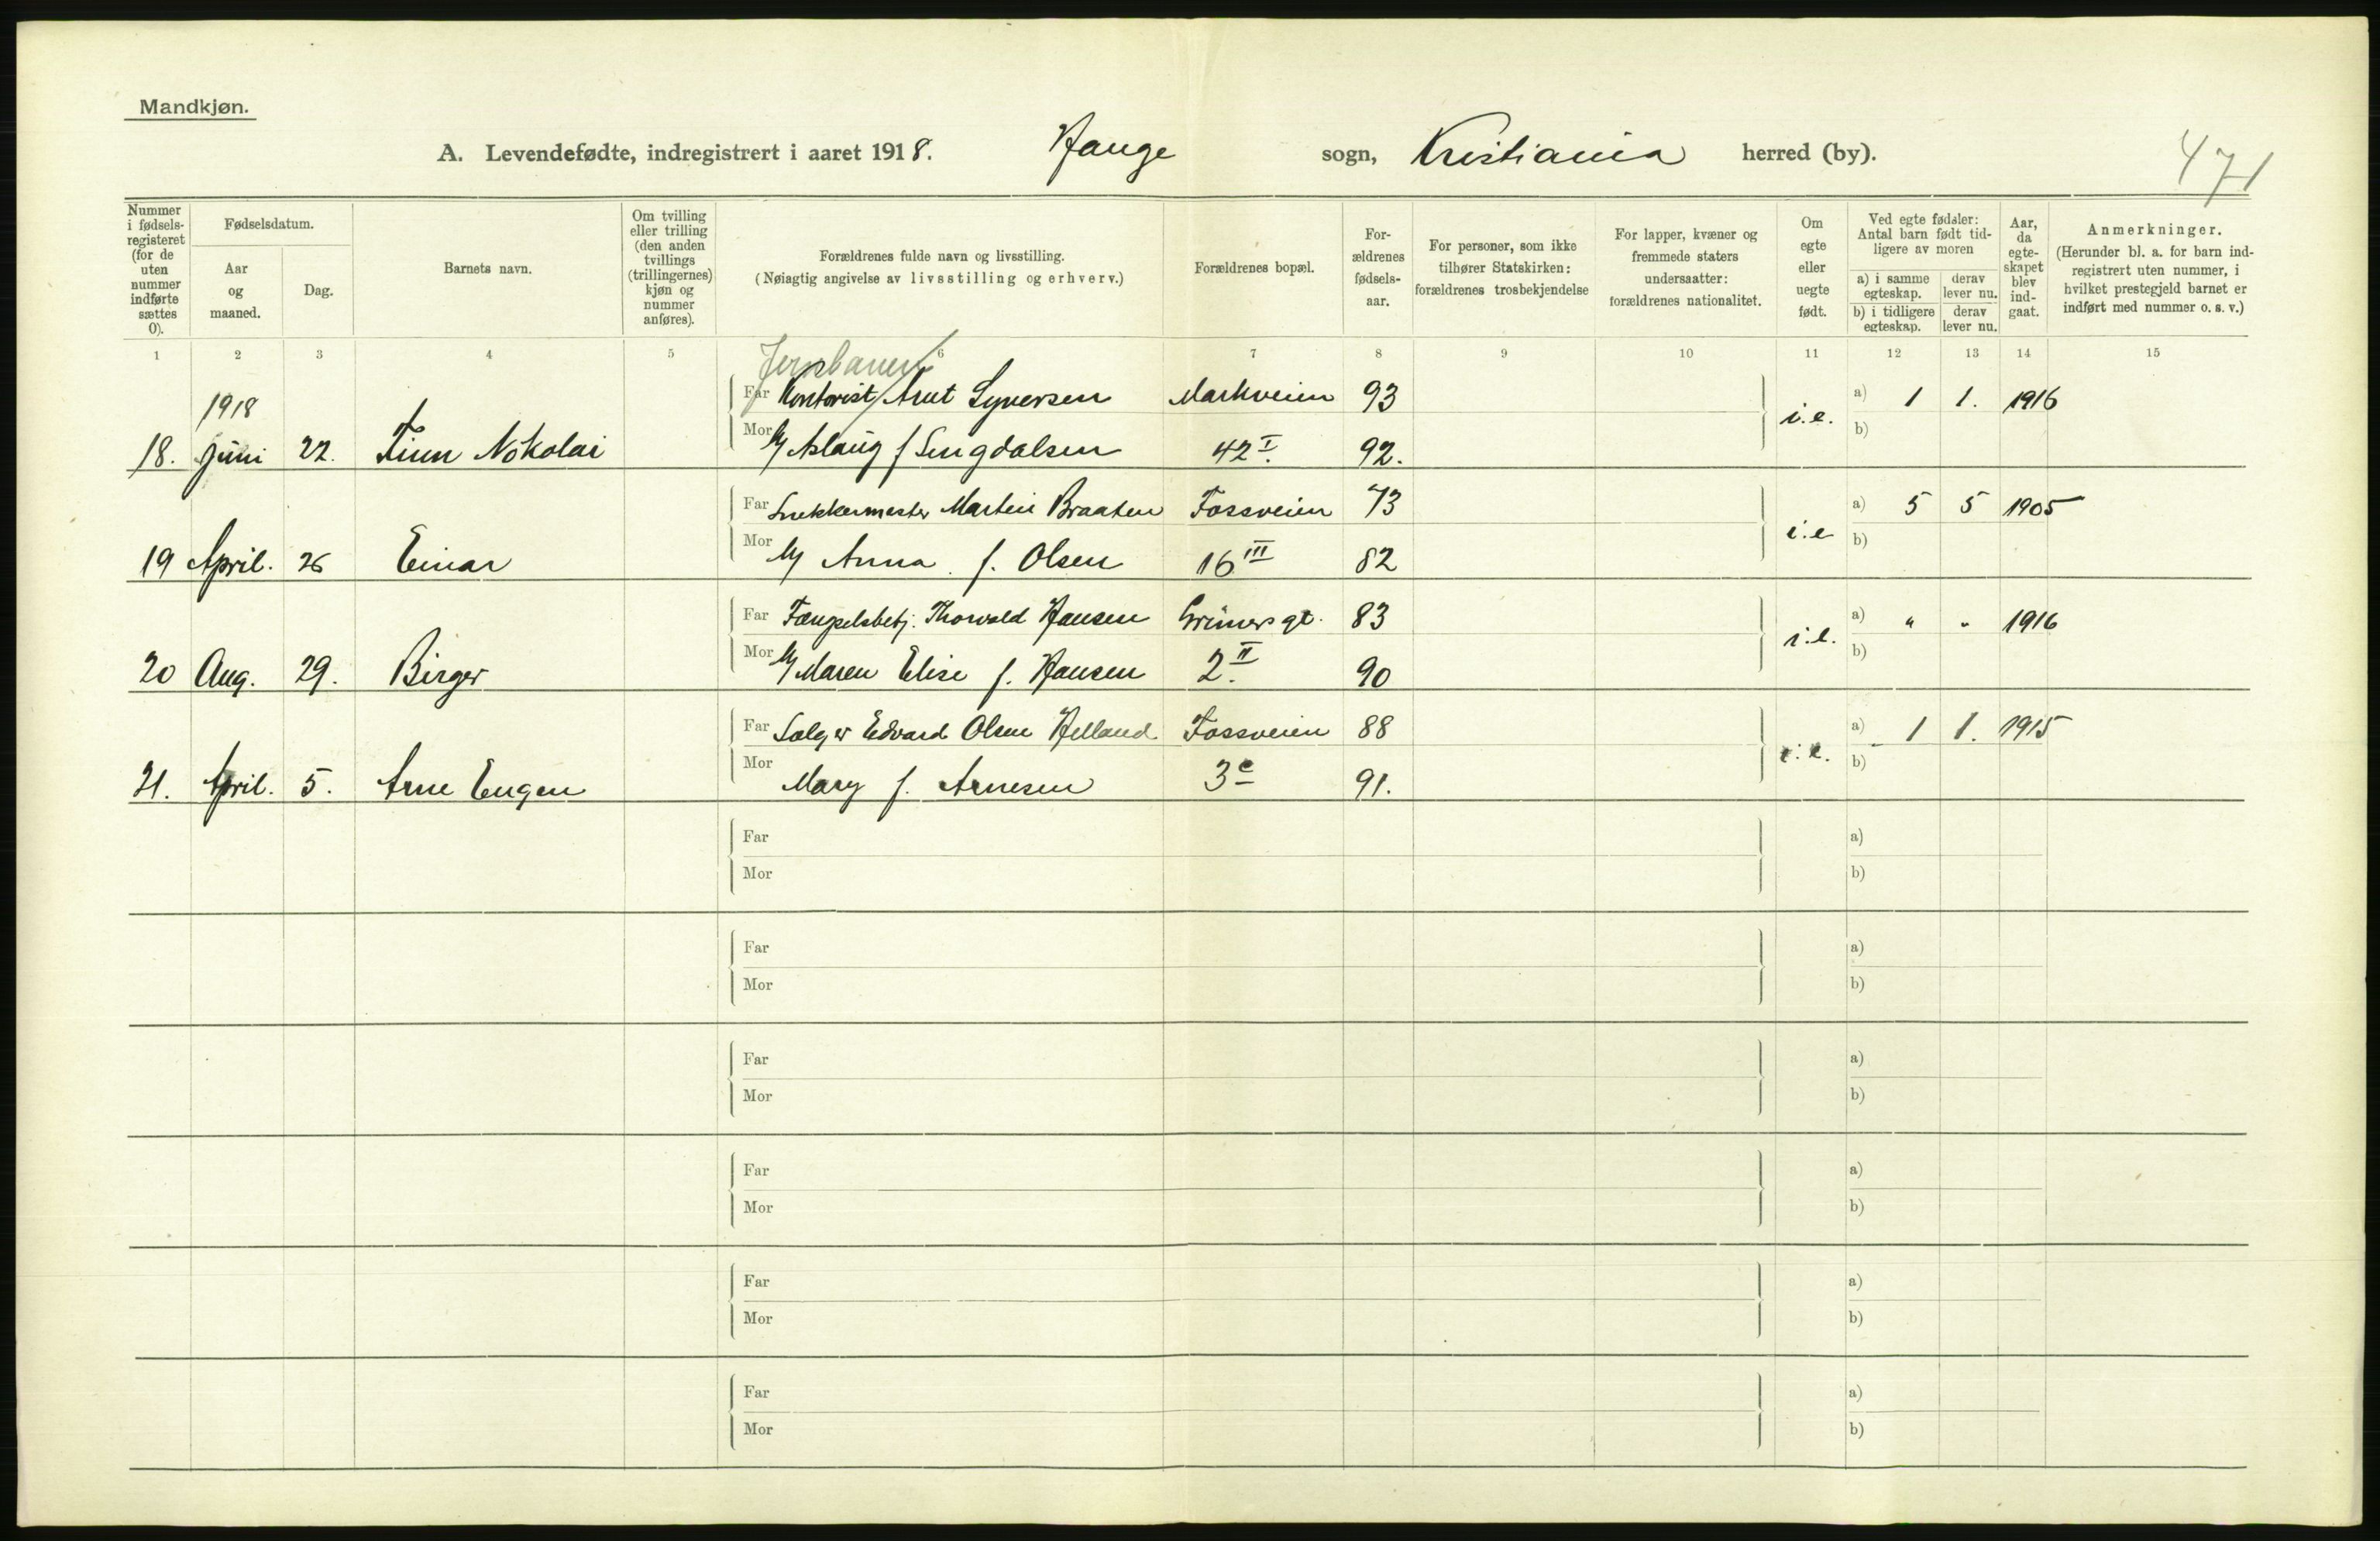 Mandkjøn.
A. Levendefødte, indregistrert i aaret 1918. Hauge sogn, Kristiania herred (by). 471
Nummer i fødsels-registeret (for de uten nummer indførte sættes 0).
Fødselsdatum.
Aar og maaned.
Dag.
Barnets navn.
Om tvilling eller trilling (den anden tvillings (trillingernes) kjøn og nummer anføres).
Forældrenes fulde navn og livsstilling.
(Nøiagtig angivelse av livsstilling og erhverv.)
Forældrenes bopæl.
For-ældrenes fødsels-aar.
For personer, som ikke tilhører Statskirken: forældrenes trosbekjendelse
For lapper, kvæner og fremmede staters undersaatter: forældrenes nationalitet.
Om egte eller uegte født.
Ved egte fødsler: Antal barn født tid-ligere av moren
a) i samme egteskap.
derav lever nu.
b) i tidligere egteskap.
derav lever nu.
Aar, da egte-skapet blev ind-gaat.
Anmerkninger.
(Herunder bl. a. for barn ind-registrert uten nummer, i hvilket prestegjeld barnet er indført med nummer o. s. v.)
1 2 3 4 5 6 7 8 9 10 11 12 13 14 15
Jernbanen
1918 Far Kontorist Arnt Syversen Markveien 93 i.e. a) 1 1. 1916
18. Juni 22. Finn Nikolai Mor Aslaug f. Lingdalsen 42 I. 92. b)
Far Snekkermester Martin Braaten Fossveien 73 i.e a) 5 5 1905
19 April. 26 Einar Mor Anna f. Olsen 16 III 82 b)
Far Fængselsbetj. Thorvald Hansen Grünersgt. 83 i.e. a) " " 1916
20 Aug. 29. Birger Mor Maren Elise f. Hansen 2 II. 90 b)
Far Sælger Edvard Olsen Helland Fossveien 88 i.e. a) 1 1. 1915
21. April. 5. Arne Eugen Mor Mary f. Arnesen 3 c 91. b)
Far a)
Mor b)
Far a)
Mor b)
Far a)
Mor b)
Far a)
Mor b)
Far a)
Mor b)
Far a)
Mor b)